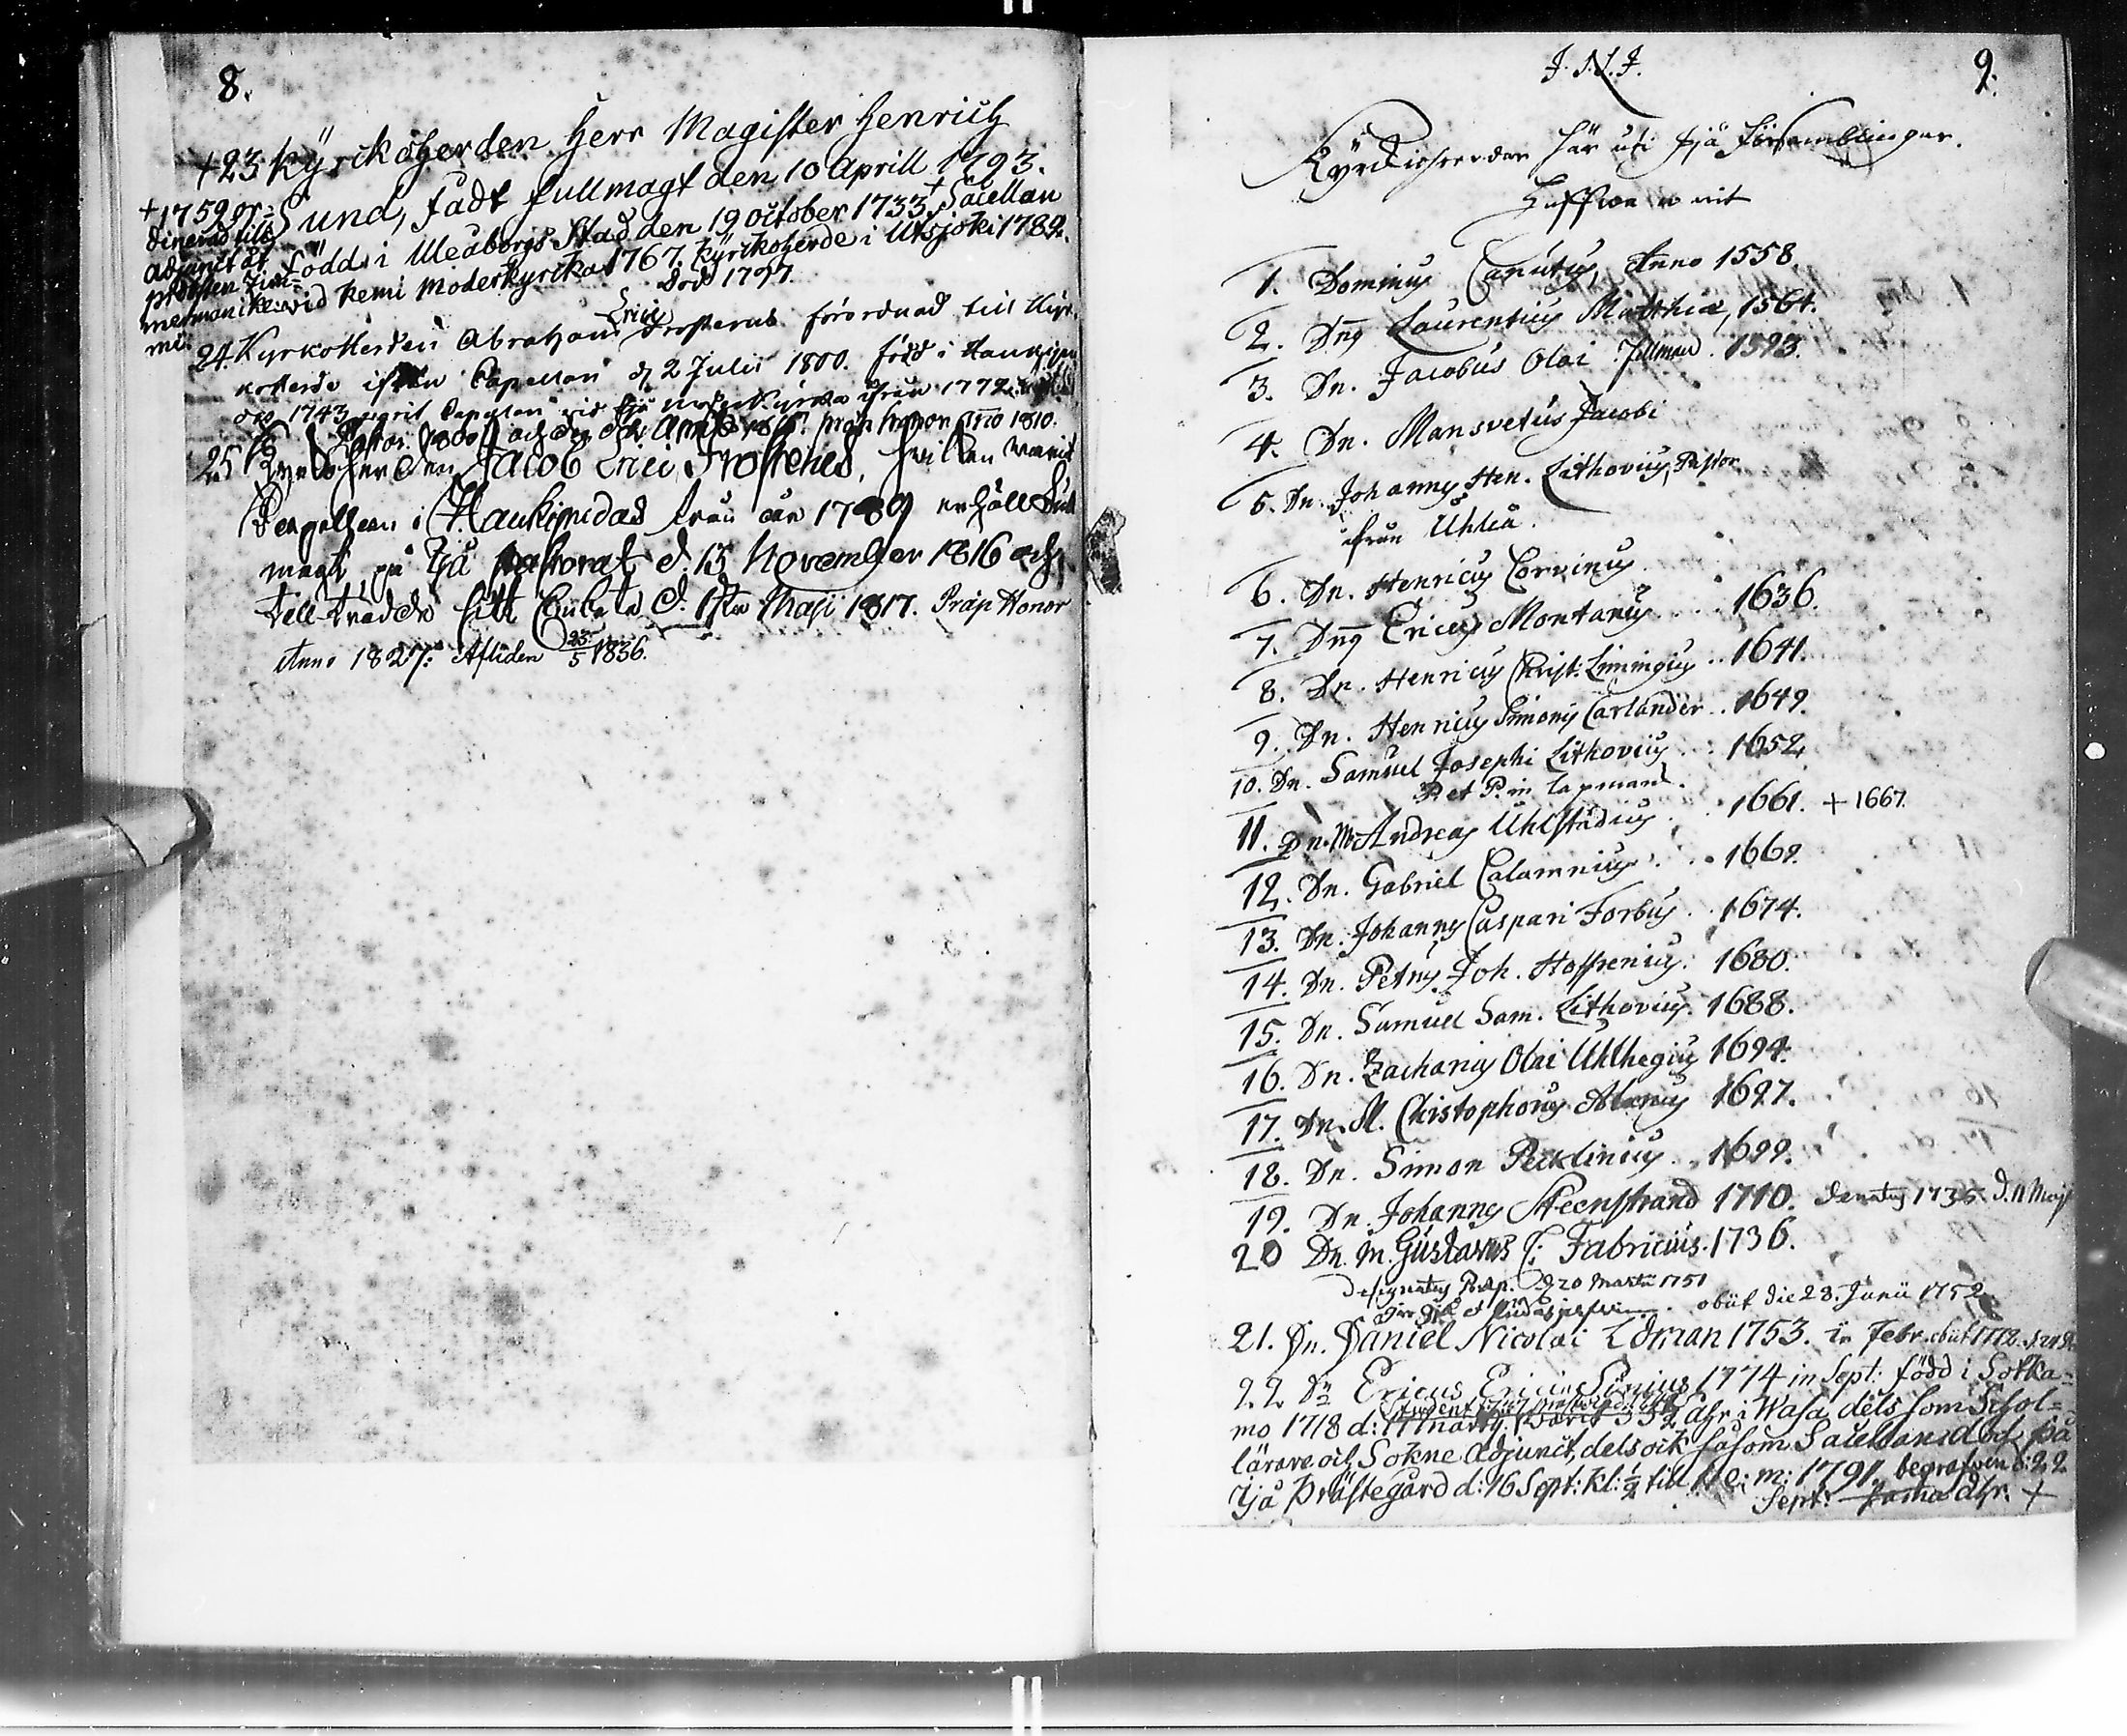 8.
+23 Kyrckoherden Herr Magister Henrich
Sund, fadt fullmagt den 10 Aprill 1793.
Född i Uleåborgs Stad den 19 October 1733 + Sacellan
vid Kemi Moderkyrcka 1767. Kyrckoherde i Utsjoki 1782.
Död 1797.
+ 1759 or=
dinerad till
Adjunct åt
probsten Zim=
merman i Ke=
mi
24. Kyrkoherden Abraham Erici Frosterus förordnad till Kyr
koherde ifrån Capellan d 2 Julii 1800. född i
1743 warit Capellan vid Ijå moderkyrka ifrån 1772.
Pastor 1800 præp honor Anno 1810.
25 Kyrkoherden Jacob Erici Frosterus, hvilken varit
Capellan i Haukipudas från år 1789 erhöll full
magt på Ijå pastorat d. 13 November 1816 och
till-trädde sitt Embete d. 1sta Maji 1817. Præp Honor
Anno 1827: Afliden 23/5 1836.
9.
J. N. J.
Kyrckioherdar här uti Ijå Församblingar.
Haffwa warit
1. Dominus Canutus, Anno 1558.
2. Dnq Laurentius Matthiæ, 1564.
3. Dn. Jacobus Olai 1593.
4. Dn. Mansvetus Jacobi
5. Dn. Johannes Hen. Lithovius, Pastor
ifrån Uhleå.
6. Dn. Henricus Corvinus.
7. Dnq Ericus Montanus . . . 1636.
8. Dn. Henricus Christ: Limingius . . 1641.
9. Dn. Henricus Simonis Carlander . . 1649.
10. Dn. Samuel Josephi Lithovius . . 1652.
P. et P. in Lapmark.
11. Dn. M. Andreas Uhlstadius . . 1661. + 1667.
12. Dn. Gabriel Calamnius . . . 1669.
13. Dn. Johannes Caspari Forbus . . 1674.
14. Dn. Petrus Joh. Hoffrenius. 1680.
15. Dn. Samuel Sam. Lithovius. 1688.
16. Dn. Zacharias Olai Uhlhegius 1694.
17. Dn. M. Christophorus Alanus 1697.
18. Dn. Simon Pecklinius . 1699.
19. Dn. Johannes Steenstrand 1710. denatus 1735. d. 11 Maji
20 Dn. M. Gustavus C: Fabricius. 1736.
designatus Præp. d 20 Martii 1751
obiit die 28. Junii 1752
21. Dn. Daniel Nicolai Edman 1753. in Febr. obiit 1772.
22. Dn Ericus Erici Sinius 1774 in Sept: född i Sotka=
mo 1718 d: 17 Martii: varit ahr i Wasa, dels som Schol=
lärare och Sokne Adjunct, dels ock såsom Sacellan död på
Ijå Prästegård d: 16 Sept: kl: 1/2 till 11 e: m: 1791. begrafven d: 22
Sept: samma åhr. +